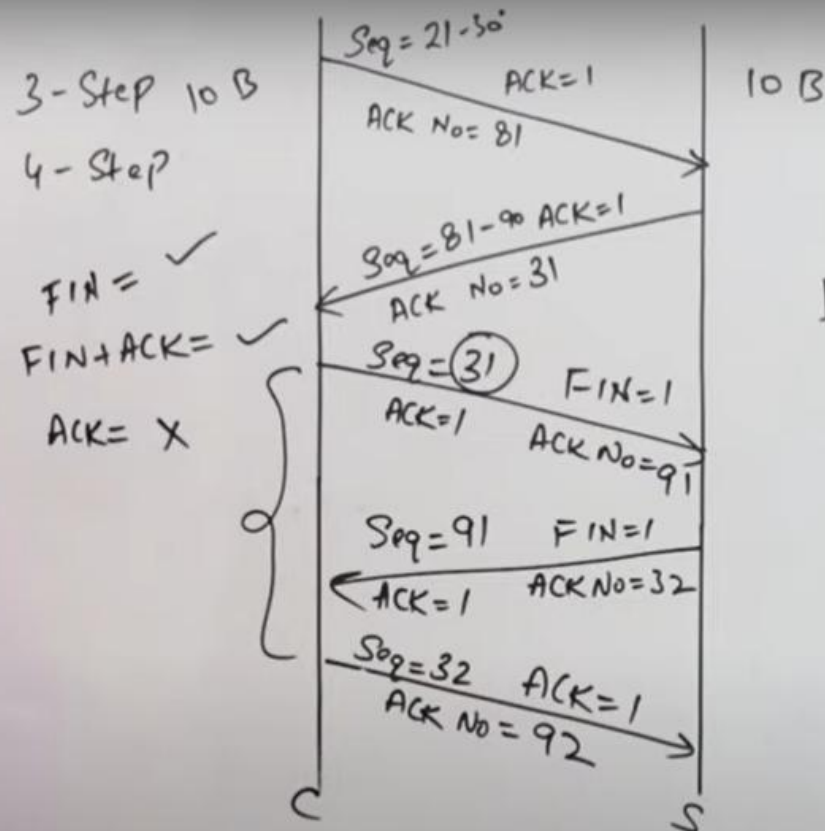 3-Step 10 B
4-Step
FIN = ✓
FIN+ACK= ✓
ACK= X
Seq = 21-30
ACK=1
ACK No= 81
10 B
Seq = 81-90 ACK=1
ACK No=31
Seq = 31
FIN=1
ACK=1
ACK No=91
Seq=91 FIN=1
ACK=1 ACK No=32
Seq=32 ACK=1
ACK No = 92
C S